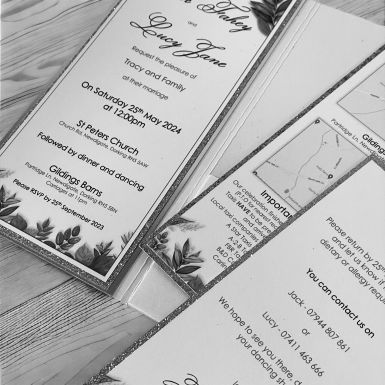 Tahey
and
Lucy Jane
Request the pleasure of
Tracy and Family
at their marriage
On Saturday 25th May 2024
at 12:00pm
St Peters Church
Church Rd, Newdigate, Dorking RH5
Followed by dinner and dancing
Gildings Barns
Partridge Ln, Newdigate, Dorking RH5 5BN
Carriages at 11pm
Please RSVP by 25th September 2023
Partridge Ln, Newdigate,
Importa
Our celebration finish
(P.T.O for nearest
Taxis HAVE to be
Local taxi companies
A Star Taxis
Please return by 25
and let us know if
dietary or allergy requ
You can contact us on
or
Jack - 07944 807 861
Lucy - 07411 463 666
We hope to see you there, d
your dancing sh